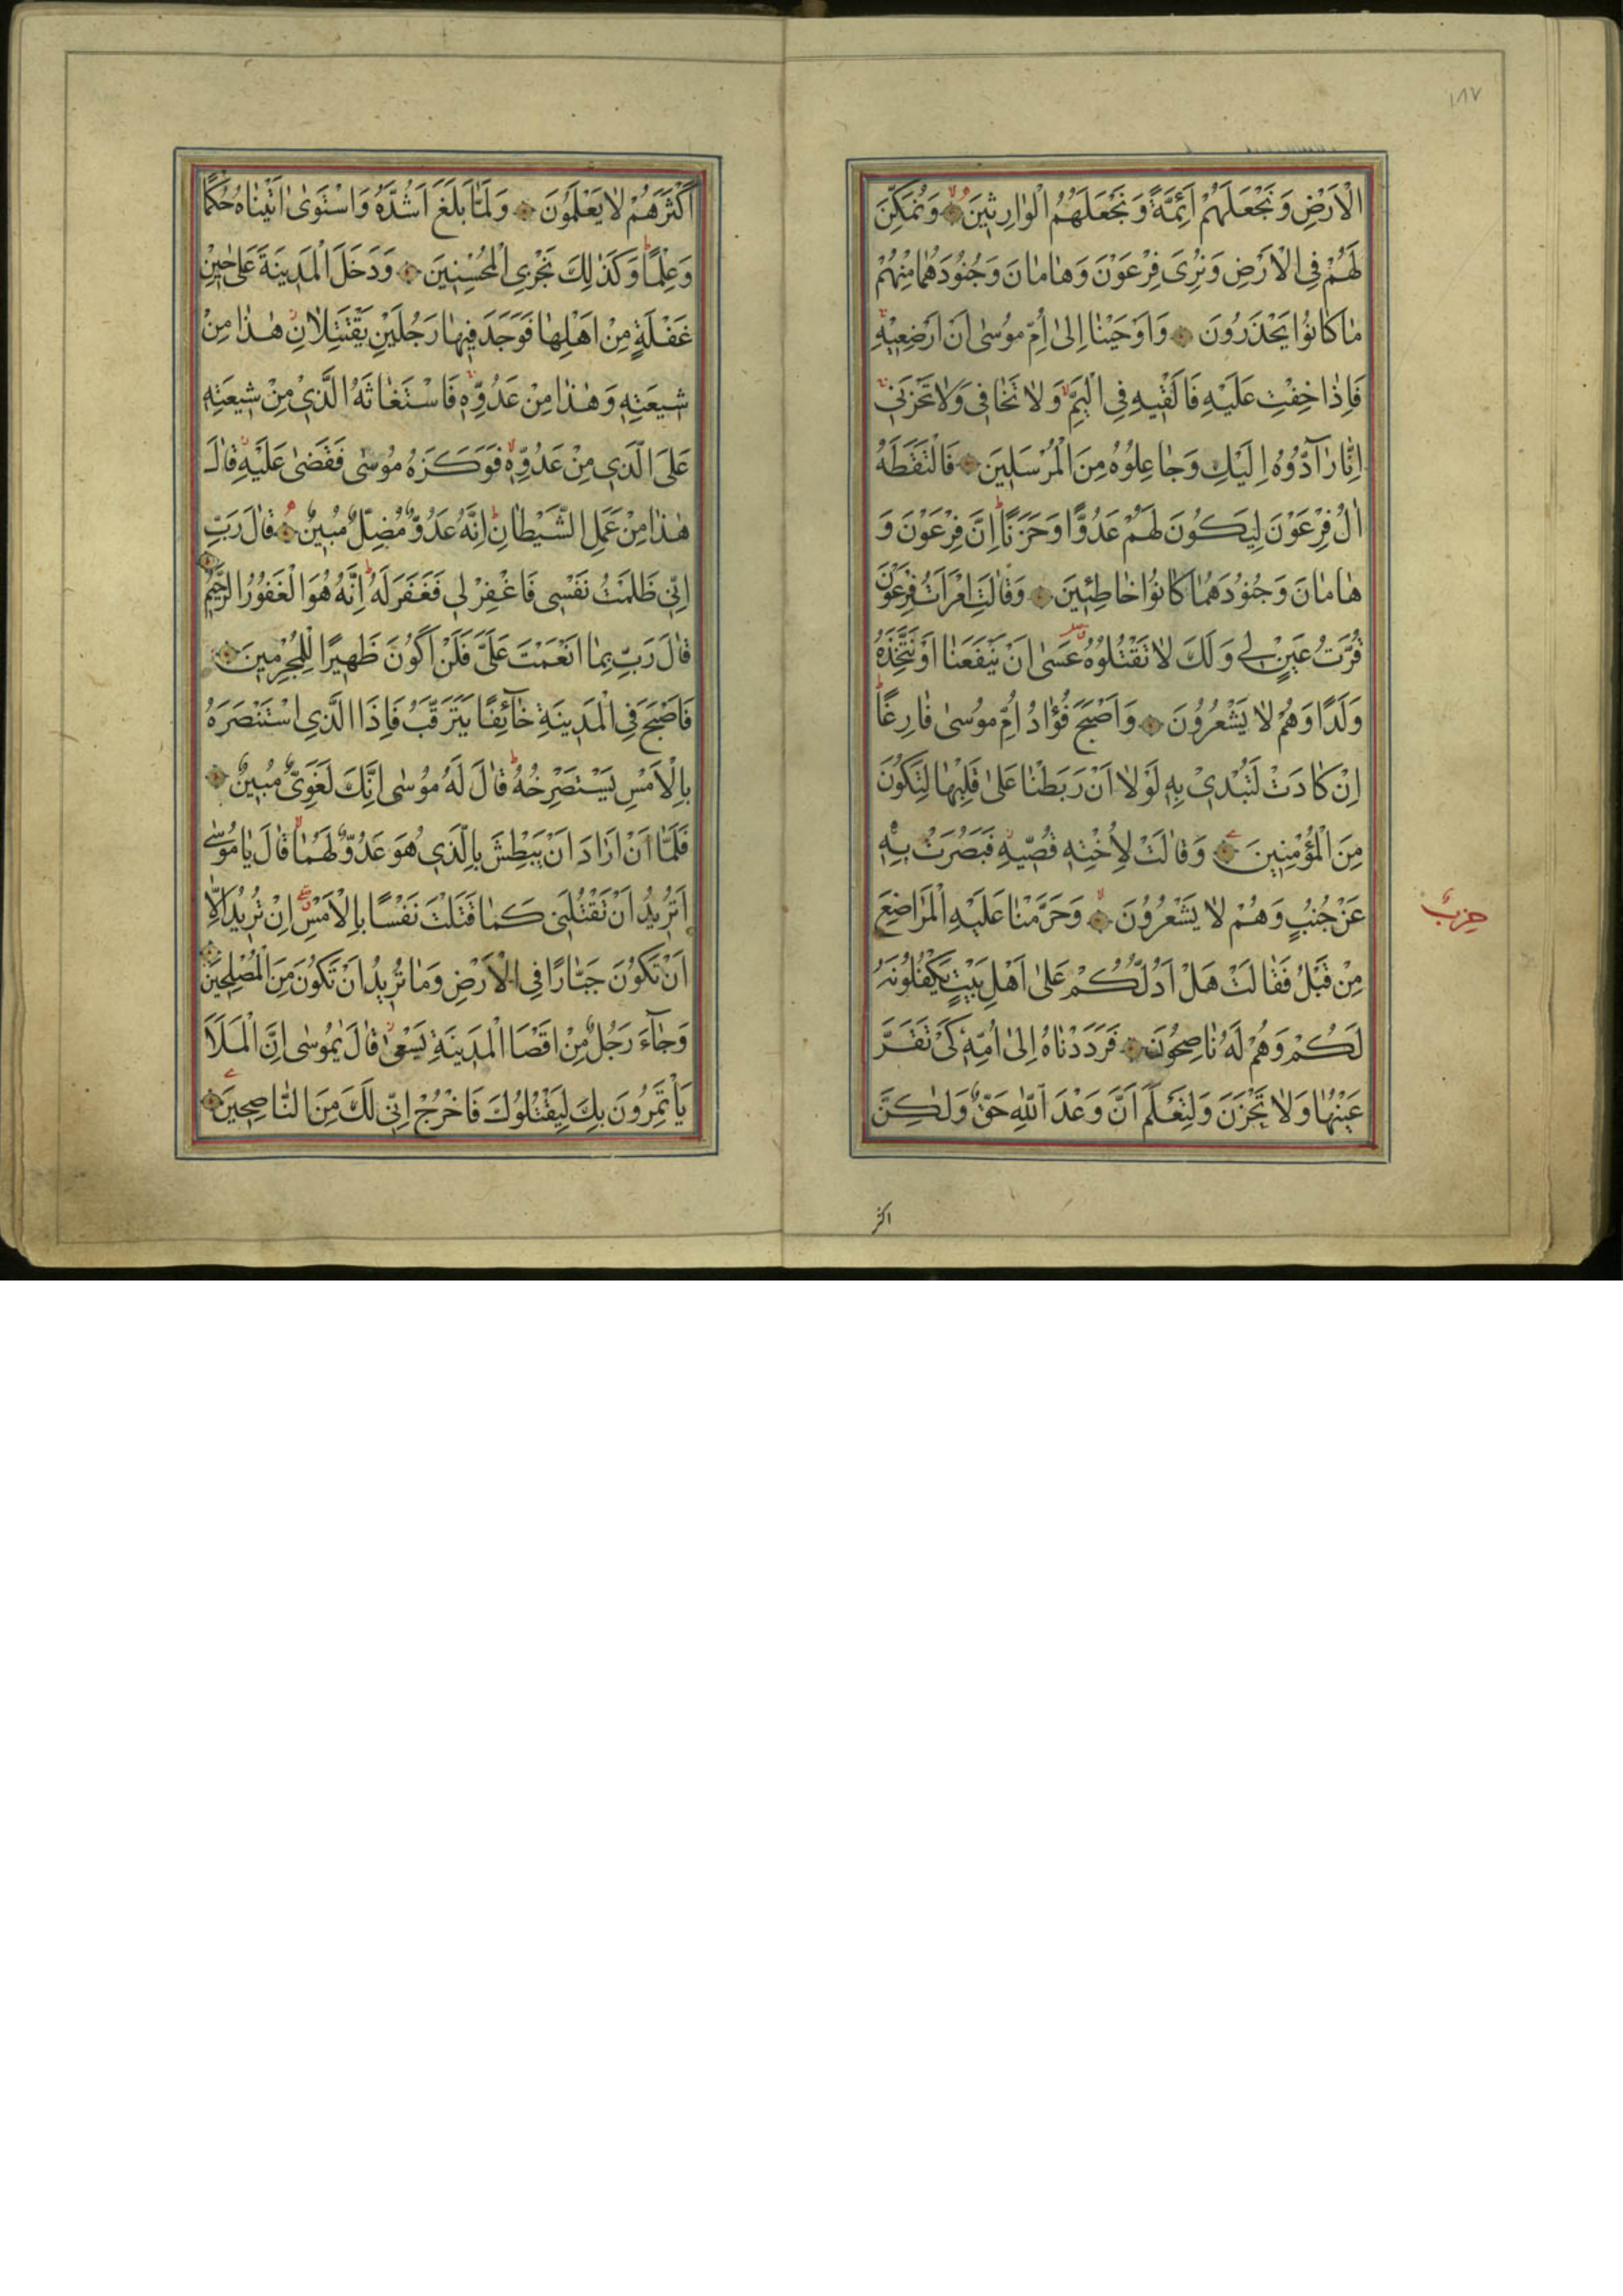 ١٨٧
الْاَرْضِ وَنَجْعَلَهُمْ اَئِمَّةً وَنَجْعَلَهُمُ الْوٰارِثٖينَ وَنُمَكِّنَ
لَهُمْ فِى الْاَرْضِ وَنُرِىَ فِرْعَوْنَ وَهٰامٰانَ وَجُنُودَهُمٰا مِنْهُمْ
مٰا كٰانُوا يَحْذَرُونَ وَاَوْحَيْنٰا اِلىٰ اُمِّ مُوسىٰ اَنْ اَرْضِعٖيهِ
فَاِذٰا خِفْتِ عَلَيْهِ فَاَلْقٖيهِ فِى الْيَمِّ وَلٰا تَخٰافٖى وَلٰا تَحْزَنٖى
اِنّٰا رٰآدُّوهُ اِلَيْكِ وَجٰاعِلُوهُ مِنَ الْمُرْسَلٖينَ فَالْتَقَطَهُ
اٰلُ فِرْعَوْنَ لِيَكُونَ لَهُمْ عَدُوًّا وَحَزَنًا اِنَّ فِرْعَوْنَ وَ
هٰامٰانَ وَجُنُودَهُمٰا كٰانُوا خٰاطِئٖينَ وَقٰالَتِ امْرَاَتُ فِرْعَوْنَ
قُرَّتُ عَيْنٍ لٖى وَلَكَ لٰا تَقْتُلُوهُ عَسىٰ اَنْ يَنْفَعَنٰا اَوْ نَتَّخِذَهُ
وَلَدًا وَهُمْ لٰا يَشْعُرُونَ وَاَصْبَحَ فُؤٰادُ اُمِّ مُوسىٰ فٰارِغًا
اِنْ كٰادَتْ لَتُبْدٖى بِهٖ لَوْلٰا اَنْ رَبَطْنٰا عَلىٰ قَلْبِهٰا لِتَكُونَ
مِنَ الْمُؤْمِنٖينَ وَقٰالَتْ لِاُخْتِهٖ قُصّٖيهِ فَبَصُرَتْ بِهٖ
عَنْ جُنُبٍ وَهُمْ لٰا يَشْعُرُونَ وَحَرَّمْنٰا عَلَيْهِ الْمَرٰاضِعَ
حزب
مِنْ قَبْلُ فَقٰالَتْ هَلْ اَدُلُّكُمْ عَلىٰ اَهْلِ بَيْتٍ يَكْفُلُونَهُ
لَكُمْ وَهُمْ لَهُ نٰاصِحُونَ فَرَدَدْنٰاهُ اِلىٰ اُمِّهٖ كَىْ تَقَرَّ
عَيْنُهٰا وَلٰا تَحْزَنَ وَلِتَعْلَمَ اَنَّ وَعْدَ اللّٰهِ حَقٌّ وَلٰكِنَّ
اكثر
اَكْثَرَهُمْ لٰا يَعْلَمُونَ وَلَمّٰا بَلَغَ اَشُدَّهُ وَاسْتَوىٰ اٰتَيْنٰاهُ حُكْمًا
وَعِلْمًا وَكَذٰلِكَ نَجْزِى الْمُحْسِنٖينَ وَدَخَلَ الْمَدٖينَةَ عَلىٰ حٖينِ
غَفْلَةٍ مِنْ اَهْلِهٰا فَوَجَدَ فٖيهٰا رَجُلَيْنِ يَقْتَتِلٰانِ هٰذٰا مِنْ
شٖيعَتِهٖ وَهٰذٰا مِنْ عَدُوِّهٖ فَاسْتَغٰاثَهُ الَّذٖى مِنْ شٖيعَتِهٖ
عَلَى الَّذٖى مِنْ عَدُوِّهٖ فَوَكَزَهُ مُوسىٰ فَقَضىٰ عَلَيْهِ قٰالَ
هٰذٰا مِنْ عَمَلِ الشَّيْطٰانِ اِنَّهُ عَدُوٌّ مُضِلٌّ مُبٖينٌ قٰالَ رَبِّ
اِنّٖى ظَلَمْتُ نَفْسٖى فَاغْفِرْ لٖى فَغَفَرَ لَهُ اِنَّهُ هُوَ الْغَفُورُ الرَّحٖيمُ
قٰالَ رَبِّ بِمٰا اَنْعَمْتَ عَلَىَّ فَلَنْ اَكُونَ ظَهٖيرًا لِلْمُجْرِمٖينَ
فَاَصْبَحَ فِى الْمَدٖينَةِ خٰآئِفًا يَتَرَقَّبُ فَاِذَا الَّذِى اسْتَنْصَرَهُ
بِالْاَمْسِ يَسْتَصْرِخُهُ قٰالَ لَهُ مُوسىٰ اِنَّكَ لَغَوِىٌّ مُبٖينٌ
فَلَمّٰا اَنْ اَرٰادَ اَنْ يَبْطِشَ بِالَّذٖى هُوَ عَدُوٌّ لَهُمٰا قٰالَ يٰا مُوسىٰ
اَتُرٖيدُ اَنْ تَقْتُلَنٖى كَمٰا قَتَلْتَ نَفْسًا بِالْاَمْسِ اِنْ تُرٖيدُ اِلّٰا
اَنْ تَكُونَ جَبّٰارًا فِى الْاَرْضِ وَمٰا تُرٖيدُ اَنْ تَكُونَ مِنَ الْمُصْلِحٖينَ
وَجٰآءَ رَجُلٌ مِنْ اَقْصَا الْمَدٖينَةِ يَسْعىٰ قٰالَ يٰمُوسىٰ اِنَّ الْمَلَاَ
يَاْتَمِرُونَ بِكَ لِيَقْتُلُوكَ فَاخْرُجْ اِنّٖى لَكَ مِنَ النّٰاصِحٖينَ